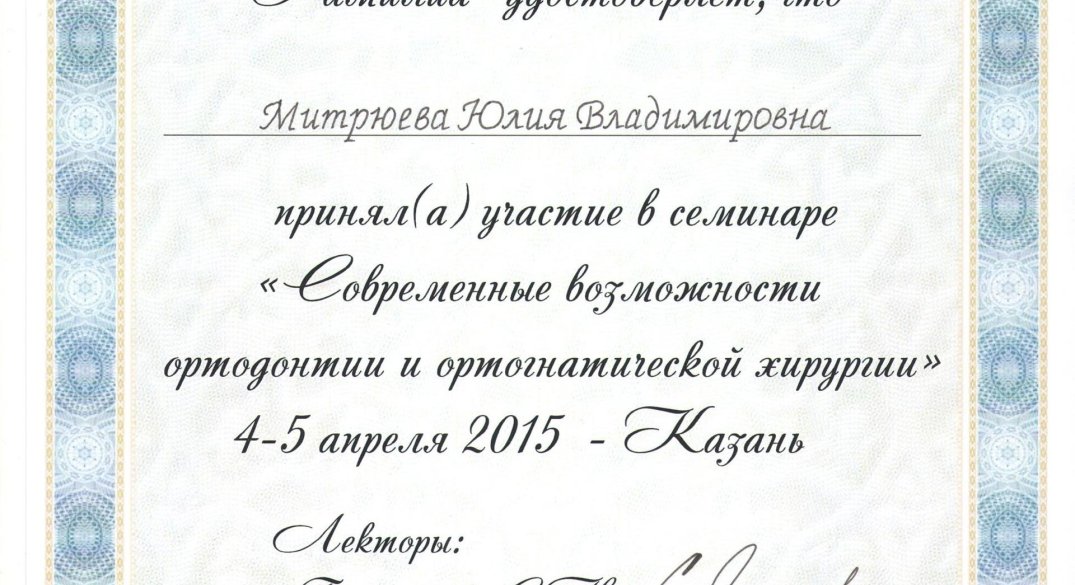 удостоверяет, что
Митрюева Юлия Владимировна
принял(а) участие в семинаре
«Современные возможности
ортодонтии и ортогнатической хирургии»
4-5 апреля 2015 - Казань
Лекторы: